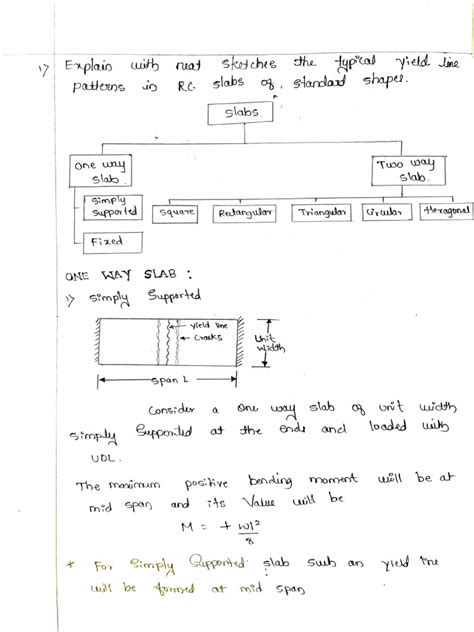 1) Explain with neat sketches the typical yield line
patterns in R.C. slabs of standard shapes.
Slabs.
One way
slab.
Two way
slab.
Simply
supported
Fixed
Square
Rectangular
Triangular
Circular
Hexagonal
ONE WAY SLAB :
1) Simply Supported
yield line
cracks
Unit
Width
span L
Consider a One way slab of unit width
simply supported at the ends and loaded with
UDL.
The maximum positive bending moment will be at
mid span and its Value will be
M = + wl²/8
* For Simply Supported slab such an yield line
will be formed at mid span